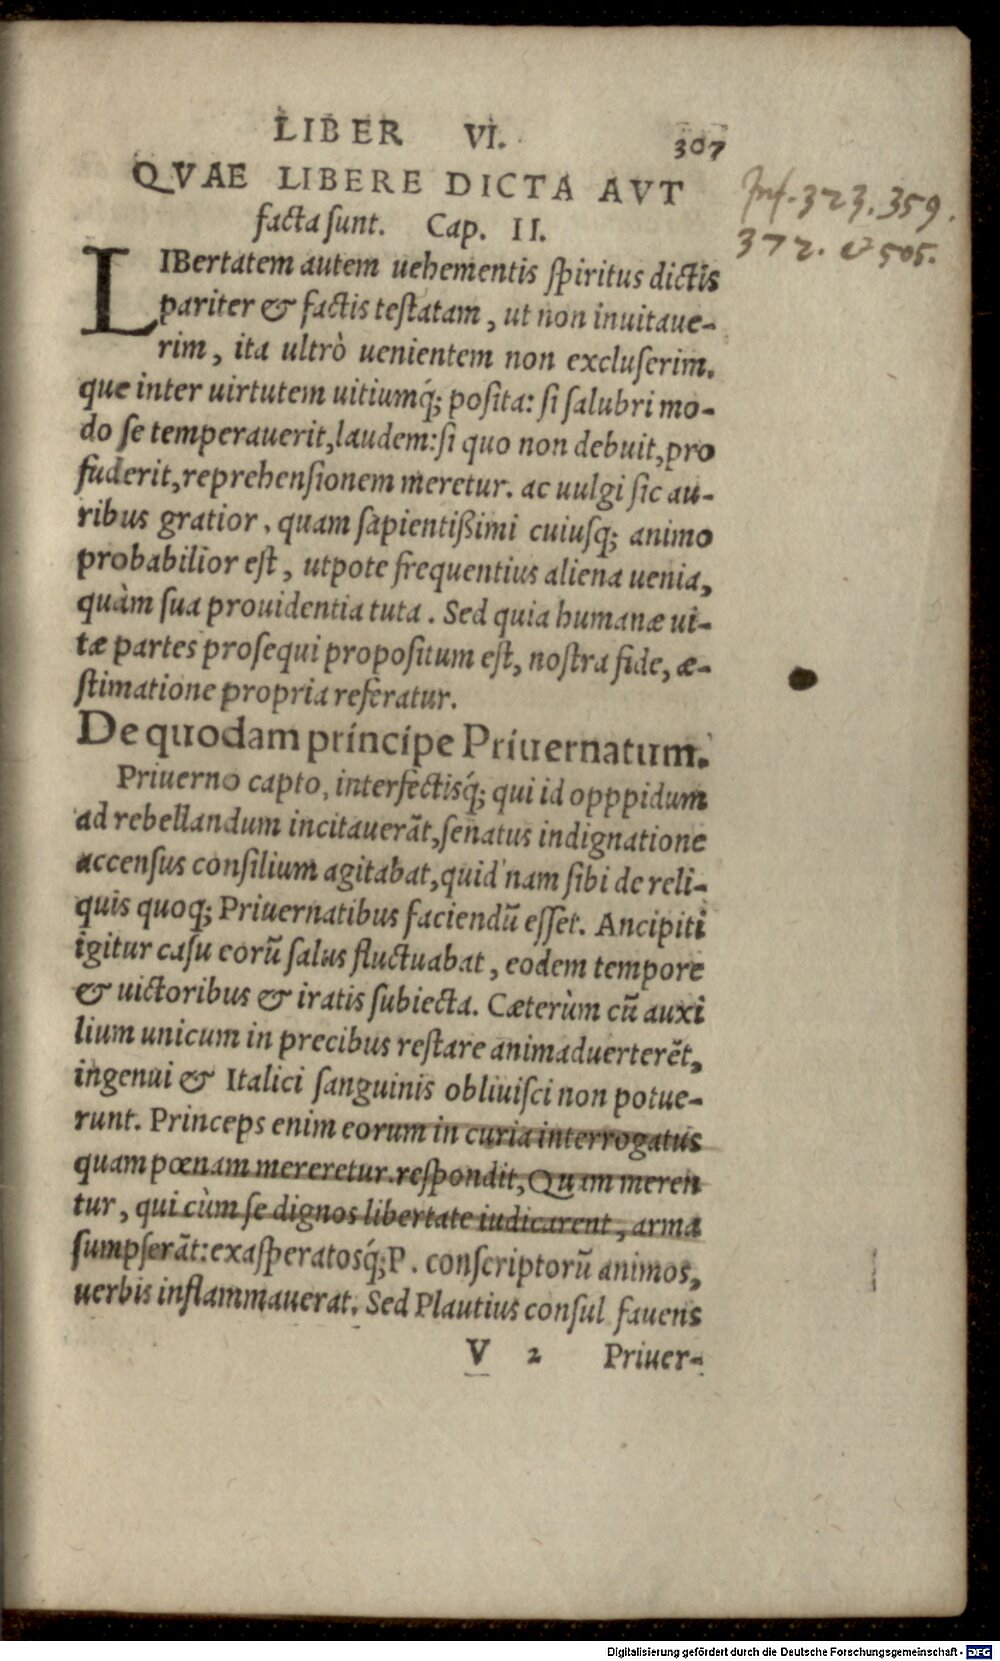 LIBER VI. 307
QVAE LIBERE DICTA AVT
facta sunt. Cap. II.
Inf. 323. 359.
372. & 505.
LIBertatem autem uehementis spiritus dictis
pariter & factis testatam, ut non inuitaue-
rim, ita ultrò uenientem non excluserim.
que inter uirtutem uitiumq́; posita: si salubri mo-
do se temperauerit, laudem: si quo non debuit, pro
fuderit, reprehensionem meretur. ac uulgi sic au-
ribus gratior, quam sapientißimi cuiusq; animo
probabilior est, utpote frequentius aliena uenia,
quàm sua prouidentia tuta. Sed quia humanæ ui-
tæ partes prosequi propositum est, nostra fide, æ-
stimatione propria referatur.
De quodam principe Priuernatum.
Priuerno capto, interfectisq́; qui id opppidum
ad rebellandum incitauerãt, senatus indignatione
accensus consilium agitabat, quid nam sibi de reli-
quis quoq; Priuernatibus faciendũ esset. Ancipiti
igitur casu eorũ salus fluctuabat, eodem tempore
& uictoribus & iratis subiecta. Cæterùm cũ auxi
lium unicum in precibus restare animaduerterẽt,
ingenui & Italici sanguinis obliuisci non potue-
runt. Princeps enim eorum in curia interrogatus
quam pœnam mereretur. respondit, Quam meren
tur, qui cùm se dignos libertate iudicarent, arma
sumpserãt: exasperatosq́; P. conscriptorũ animos,
uerbis inflammauerat. Sed Plautius consul fauens
V 2 Priuer-
Digitalisierung gefördert durch die Deutsche Forschungsgemeinschaft - DFG